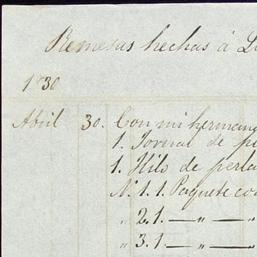 Remesas hechas á
1830
Abril 30. Con mi herman
1. Jornal de
1. Hilo de perla
N. 1. 1. Paquete co
" 2. 1. — " —
" 3. 1 — " —